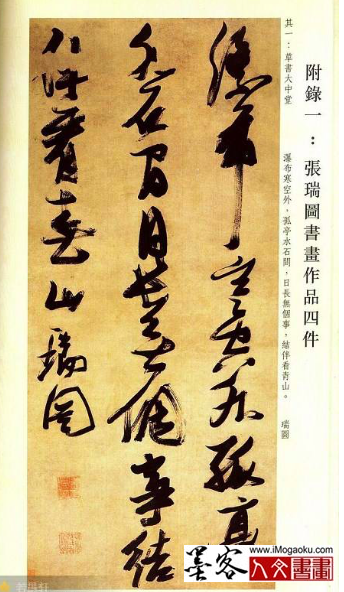 附錄一：張瑞圖書畫作品四件
其一：草書大中堂
瀑布寒空外，孤亭水石間，日長無個事，結伴看青山。 瑞圖
瀑布空寒外孤亭
水石間日長無個事結
伴看青山瑞圖
www.iMogaoku.com
墨客
人文書畫